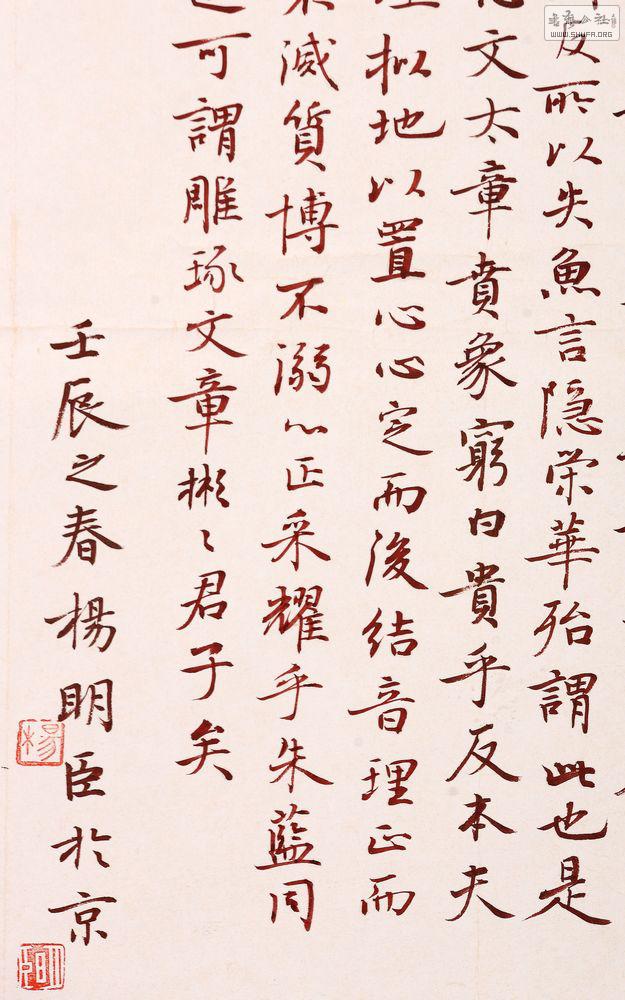 反所以失魚言隐荣華殆謂此也是
文太章賁象窮白貴乎反本夫
理拟地以置心心定而後结音理正而
滅質博不溺心正采耀乎朱藍间
可謂雕琢文章彬〻君子矣
壬辰之春楊明臣於京
楊
WWW.SHUFA.ORG